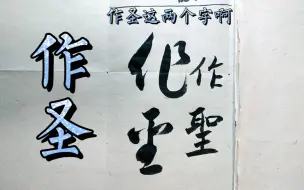 作圣这两个字啊
作圣
作聖
作聖